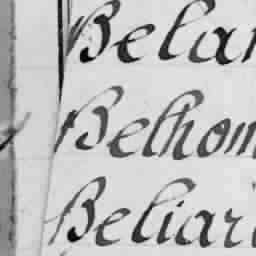 Belan
Belhom
Beliar